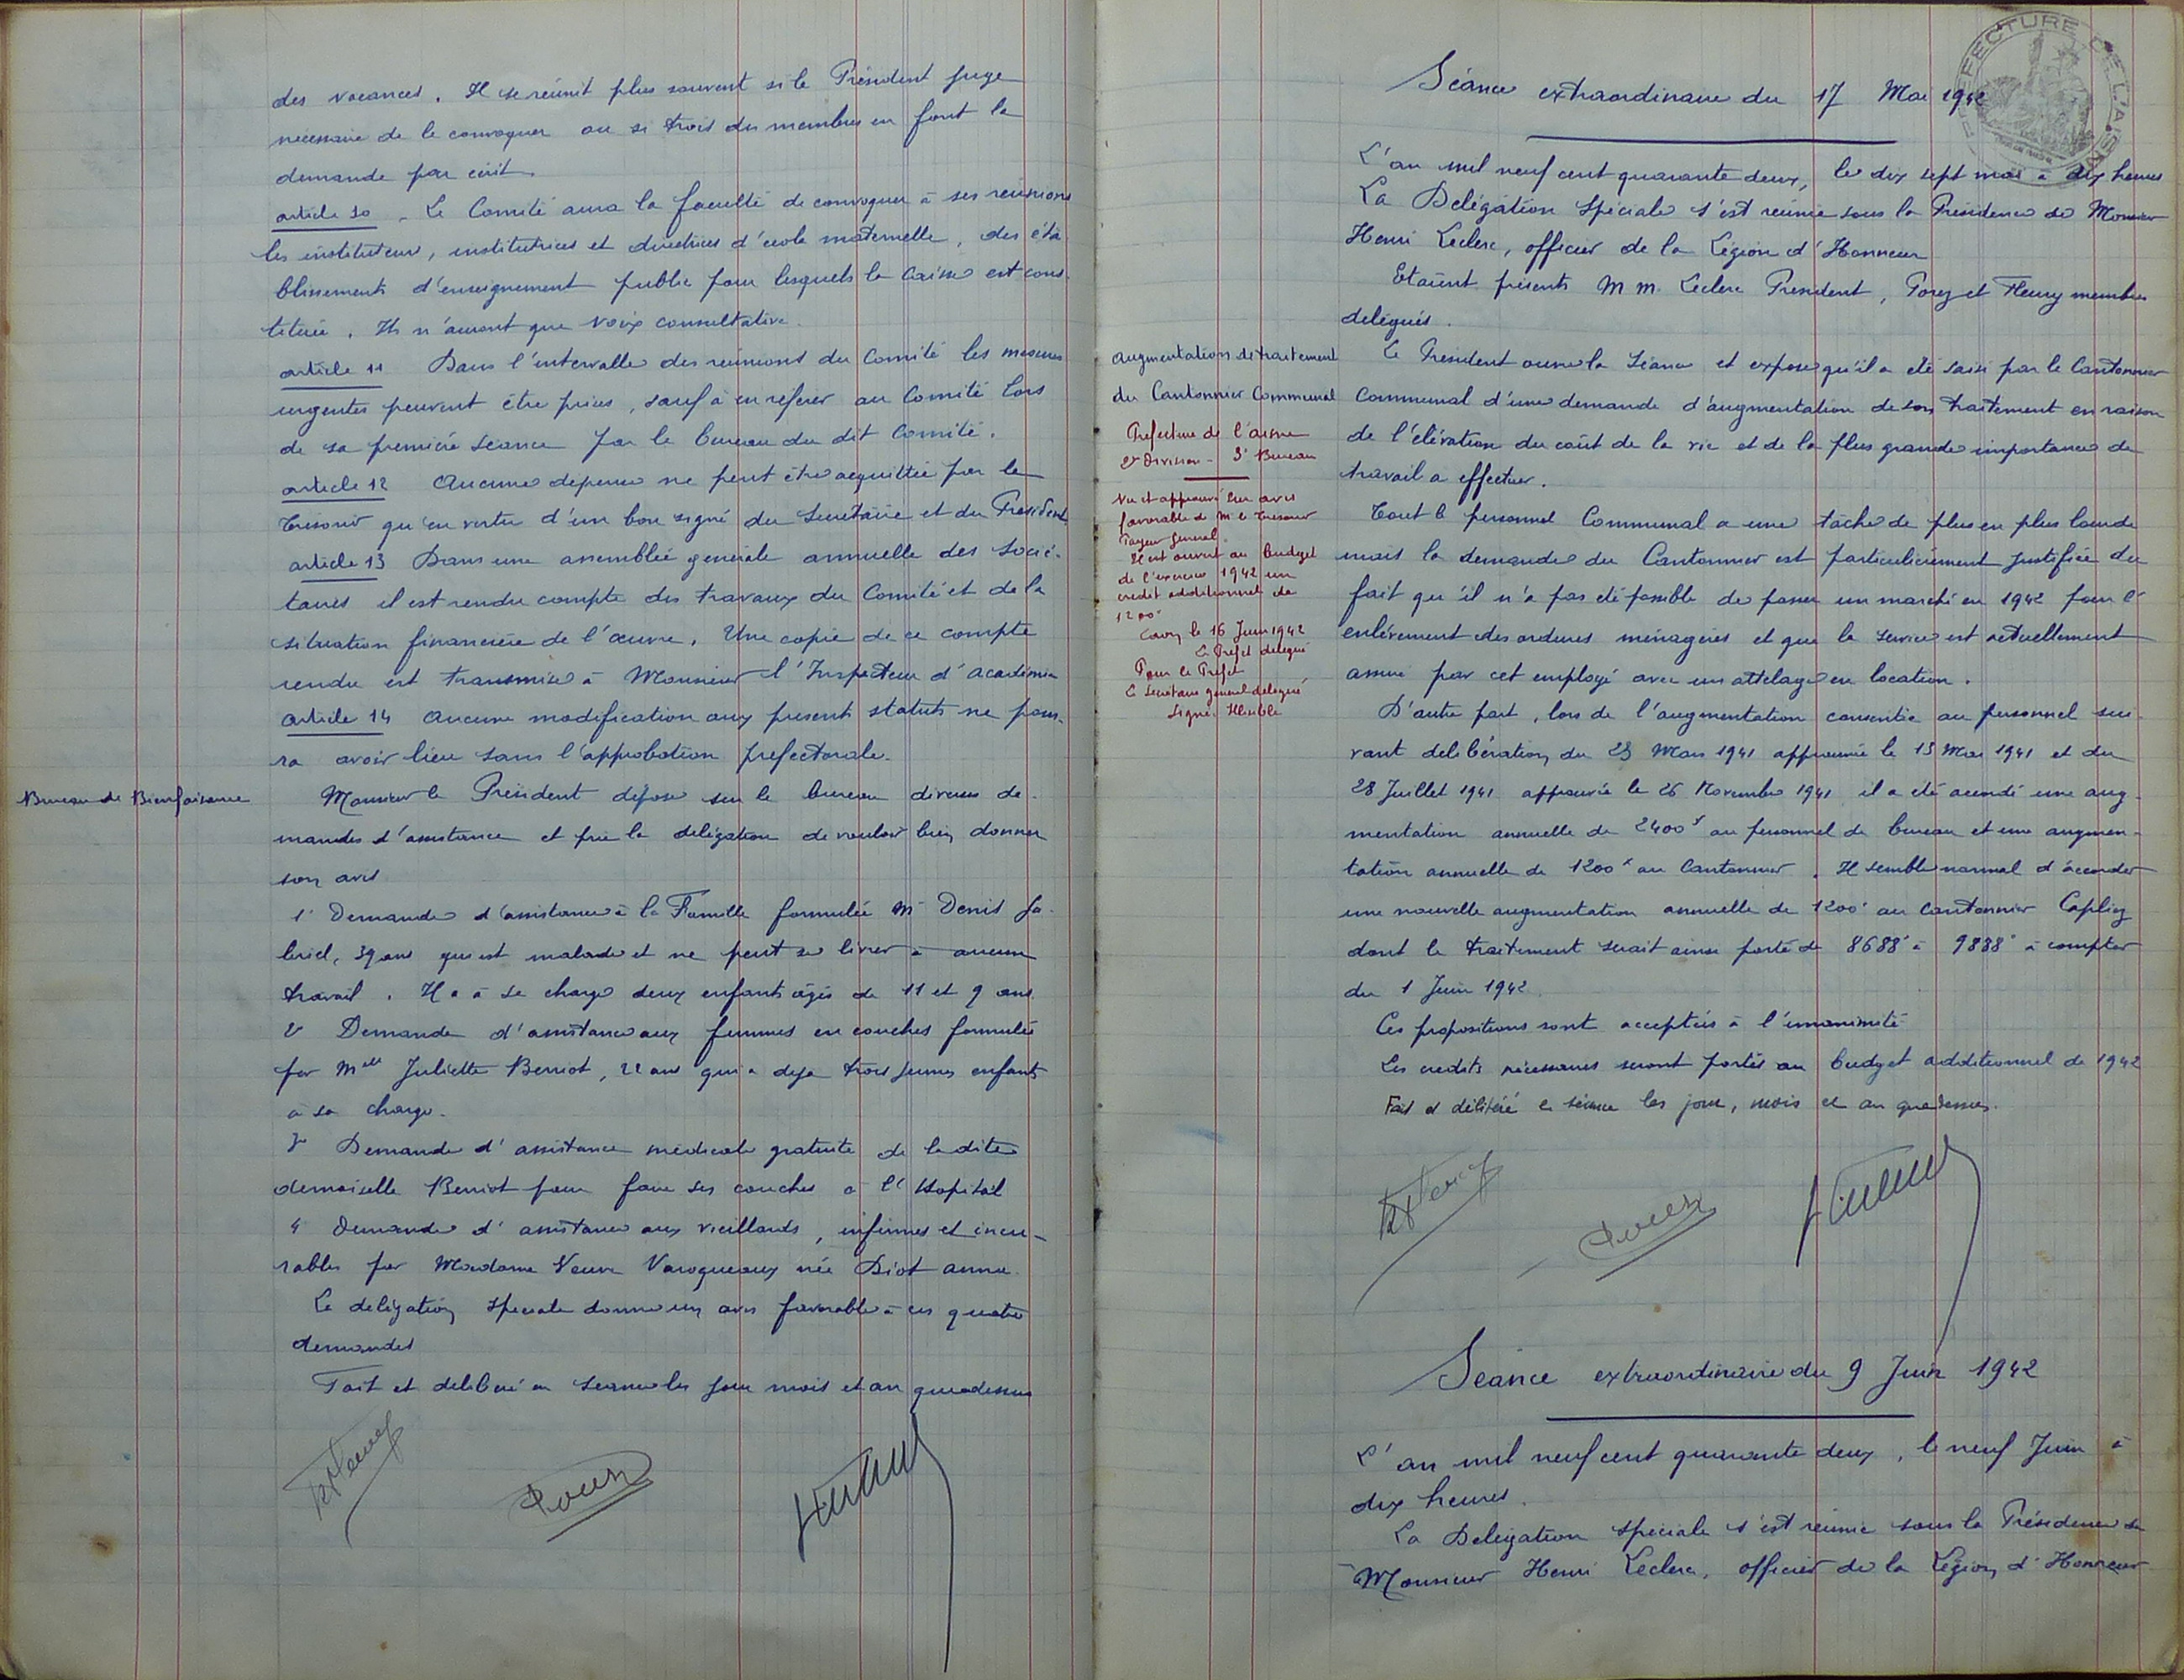 des vacances. Il se réunit plus souvent si le Président juge
nécessaire de le convoquer ou si trois des membres en font la
demande par écrit.
article 10 - Le Comité aura la faculté de convoquer à ses réunions
les instituteurs, institutrices et directrices d'école maternelle, des éta
blissements d'enseignement public pour lesquels la Caisse est cons-
tituée. Ils n'auront que voix consultative.
article 11 Dans l'intervalle des réunions du Comité les mesures
urgentes peuvent être prises, sauf à en référer au Comité lors
de sa première séance par le bureau du dit Comité.
article 12 Aucune dépense ne peut être acquittée par le
Trésorier qu'en vertu d'un bon signé du Secrétaire et du Président
article 13 Dans une assemblée générale annuelle des Socié-
taires il est rendu compte des travaux du Comité et de la
situation financière de l'œuvre. Une copie de ce compte
rendu est transmise à Monsieur l'Inspecteur d'académie
article 14 Aucune modification aux présents statuts ne pour-
ra avoir lieu sans l'approbation préfectorale.
Bureau de Bienfaisance
Monsieur le Président dépose sur le bureau diverses de-
mandes d'assistance et prie la délégation de vouloir bien donner
son avis
1° Demande d'assistance à la Famille formulée Mr Denis Ga-
briel, 39 ans qui est malade et ne peut se livrer à aucun
travail. Il a à sa charge deux enfants âgés de 11 et 9 ans.
2° Demande d'assistance aux femmes en couches formulée
par Melle Juliette Berriot, 22 ans qui a déjà trois jeunes enfants
à sa charge.
3° Demande d'assistance médicale gratuite de la dite
demoiselle Berriot pour faire ses couches à l'Hopital
4° Demande d'assistance aux vieillards, infirmes et incu-
rables par Madame Veuve Varoqueaux née Diot anna
La délégation spéciale donne un avis favorable à ces quatre
demandes
Fait et délibéré en séance les jour mois et an que dessus
PRÉFECTURE DE L'AISNE
Séance extraordinaire du 17 Mai 1942
L'an mil neuf cent quarante deux, le dix sept mai à dix heures
La Délégation Spéciale s'est réunie sous la Présidence de Monsieur
Henri Leclerc, officier de la Légion d'Honneur
Etaient présents M M. Leclerc Président, Porez et Fleury membres
délégués.
augmentation de traitement
du Cantonnier Communal
Préfecture de l'aisne
2e Division - 3e Bureau
Vu et approuvé sur avis
favorable de Mr le Trésorier
Payeur Général.
Il est ouvert au budget
de l'exercice 1942 un
crédit additionnel de
1200f
Laon, le 16 Juin 1942
Le Préfet délégué
Pour le Préfet
Le Secrétaire général délégué
Signé: Illisible
Le Président ouvre la Séance et expose qu'il a été saisi par le Cantonnier
Communal d'une demande d'augmentation de son traitement en raison
de l'élévation du coût de la vie et de la plus grande importance du
travail à effectuer.
Tout le personnel Communal a une tâche de plus en plus lourde
mais la demande du Cantonnier est particulièrement justifiée du
fait qu'il n'a pas été possible de passer un marché en 1942 pour l'
enlèvement des ordures ménagères et que le service est actuellement
assuré par cet employé avec un attelage en location.
D'autre part, lors de l'augmentation consentie au personnel sui-
vant délibération du 23 Mars 1941 approuvée le 13 Mai 1941 et du
28 Juillet 1941 approuvée le 26 Novembre 1941 il a été accordé une aug-
mentation annuelle de 2400f au personnel de bureau et une augmen-
tation annuelle de 1200f au Cantonnier. Il semble normal d'accorder
une nouvelle augmentation annuelle de 1200f au cantonnier Caplin
dont le traitement serait ainsi porté de 8688f à 9888f à compter
du 1 Juin 1942.
Ces propositions sont acceptées à l'unanimité
Les crédits nécessaires seront portés au budget additionnel de 1942
Fait et délibéré en séance les jour, mois et an que dessus.
Séance extraordinaire du 9 Juin 1942
L'an mil neuf cent quarante deux, le neuf Juin à
dix heures.
La Délégation spéciale s'est réunie sous la Présidence de
Monsieur Henri Leclerc, officier de la Légion d'Honneur